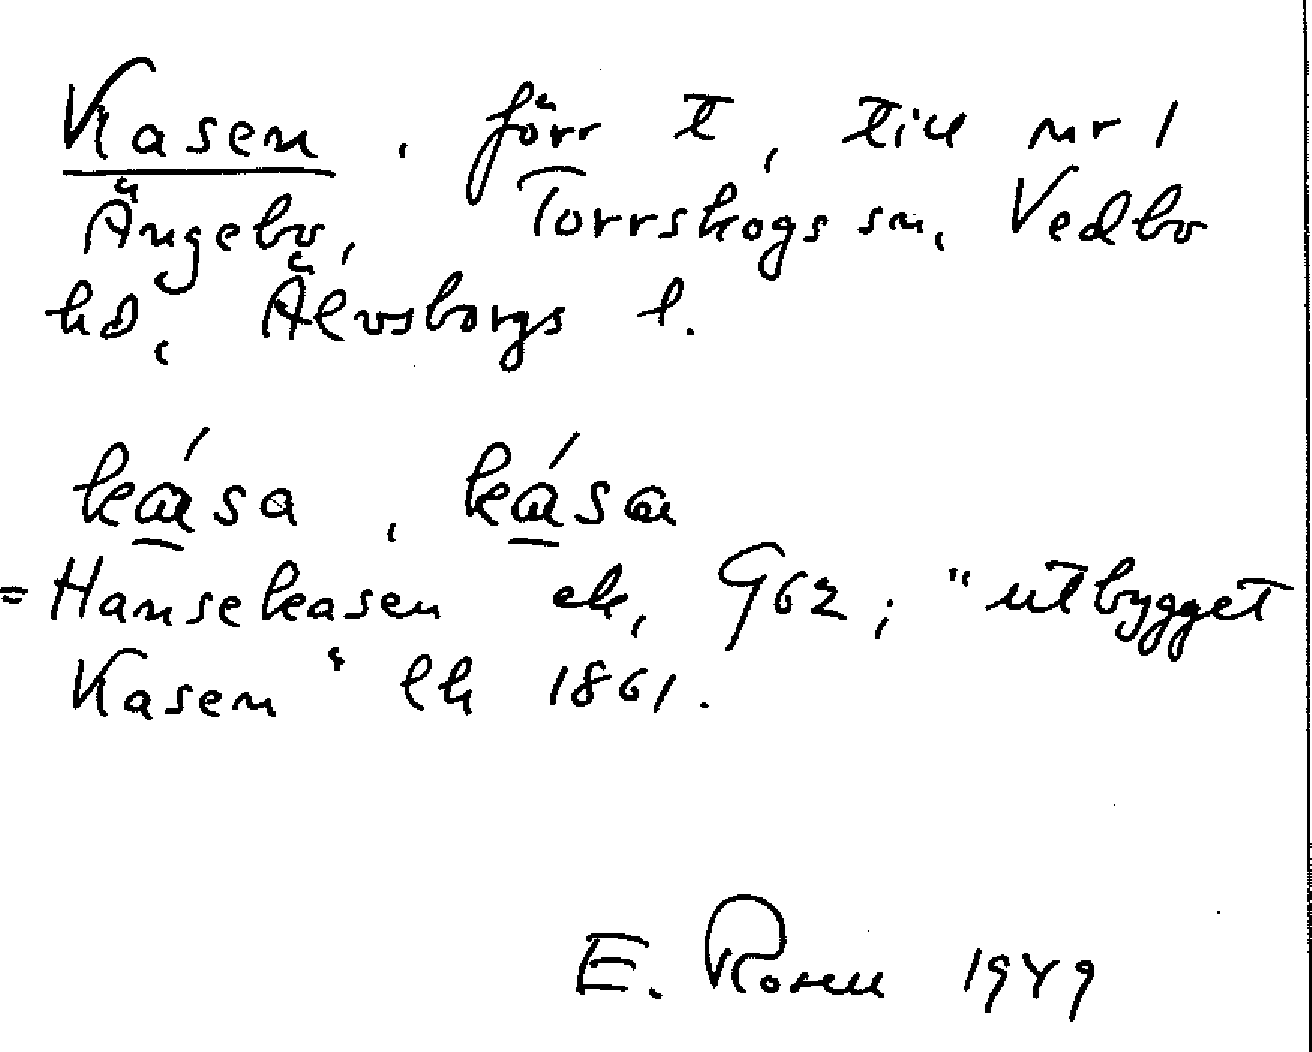 Kasen, förr t, till nr 1
Ängebo, Torrskogs sn, Vedbo
hd, Älvsborgs l.
kása, kása
= Hansekasen ek, G62; "utbygget
Kasen" lk 1861.
E. Rosell 1949